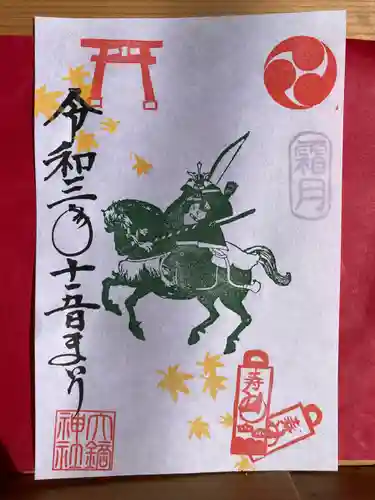 霜月
令和三年十五日まいり
大鏑
神社
寿
寿